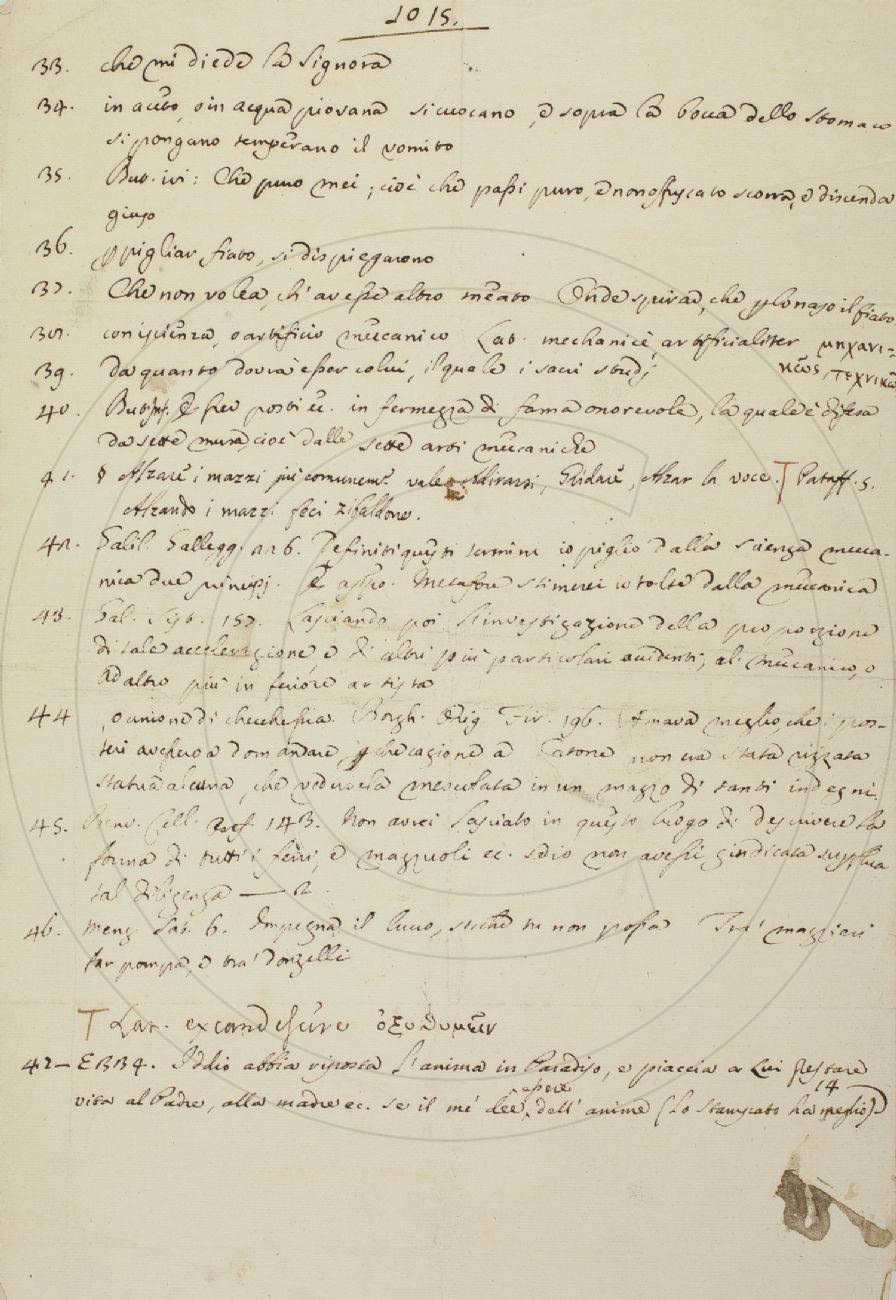 1015.
33. che mi diede la Signora
34. in aceto, o in acqua piovana si cuocano, e sopra la bocca dello stomaco
si pongano temperano il vomito
35. But. ivi: Che puro mei; cioè che passi puro, e non offuscato scorra, e discenda
giuso
36. pigliar fiato, si dispiegarono
37. Che non volea, ch'avesse altro meato Onde spirar, che pl naso il fiato
38. conscienza, o artificio meccanico Lat. mechanicè, artificialiter μηχανι-
39. da quanto dovria esser colui, il quale i sacri studj κῶς, τεχνικῶς
40. But. in fermezza di fama onorevole, la quale è difesa
da sette mura, cioè dalle sette arti meccaniche
41. Alzare i mazzi più comunem. vale Adirarsi, Gridare, Alzar la voce. T Pataff. 5.
Alzando i mazzi feci zibaldone.
42. Galil. Gallegg. 226. Definiti questi termini io piglio dalla scienza mecca-
nica due principj. E appo. Metafore stimerei io tolte dalla meccanica
43. Gal. Sist. 157. Lasciando poi l'investigazione della proporzione
di tale accelerazione, e di altri più particolari accidenti, al meccanico, o
ad altro più inferiore artista
44 , o unione di checchessia. Borgh. Orig. Fir. 196. Amava meglio, che i pos-
teri avessero a domandare, pchè cagione a Catone non era stata rizzata
statua alcuna, che vedersela mescolata in un mazzo di tanti indegni.
45. Benv. Cell. Oref. 143. Non avrei lasciato in questo luogo di descrivere la
forma di tutti i ferri, e mazzuoli ec. s'io non avessi giudicata suplua
tal diligenza —
46. Menz. Sat. 6. Impegna il lucco, sicchè tu non possa Tra' mazzieri
far pompa, e tra' donzelli
T Lat. excandescere ὀξυθυμεῖν
42– E 334. Iddio abbia riposta l'anima in Paradiso, e piaccia a Lui prestare
14
vita al Padre, alla madre ec. se il me' dee essere dell'anime (Lo stampato ha meglio)